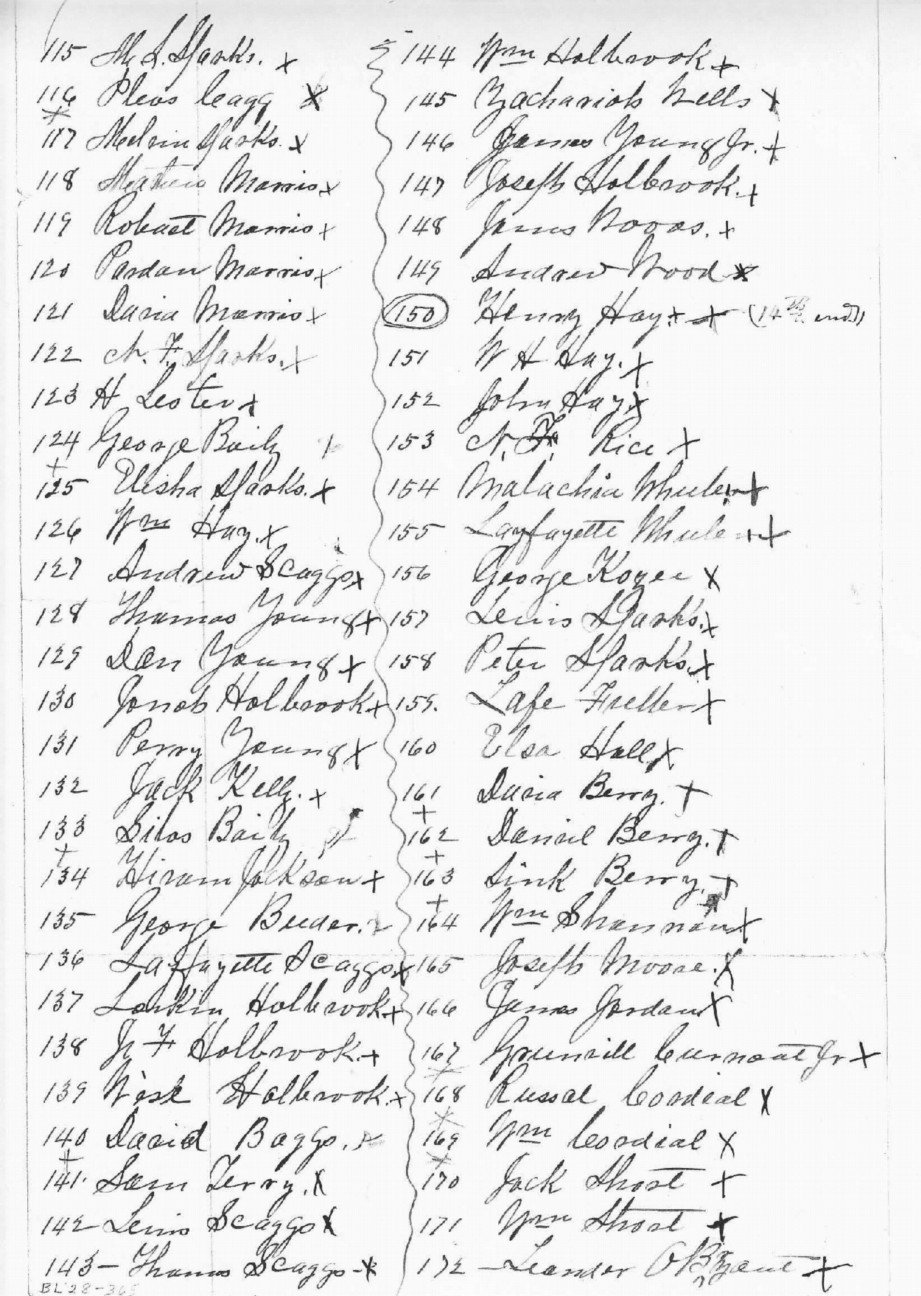 115 M. L. Sparks. x
116 Pleas Cagg x
117 Melvin Sparks. x
118 Mathew Morris x
119 Robert Morris x
120 Pardan Morris x
121 David Morris x
122 N. F. Sparks. x
123 H Lester x
124 George Baily
125 Elisha Sparks. x
126 Wm Hay. x
127 Andrew Scaggs x
128 Thomas Young x
129 Dan Young x
130 Jonah Holbrook x
131 Perry Young x
132 Jack Kelly. x
133 Silas Baily
134 Hiram Jackson x
135 George
136 Laffayette Scaggs x
137 Larkin Holbrook x
138 F Holbrook. x
139 West Holbrook. x
140 David Baggs. x
141. Sam Terry. x
142 Lewis Scaggs x
143 - Thomas Scaggs - x
BL'28-365
144 Wm Holbrook x
145 Zachariah Wells x
146 James Young Jr. x
147 Joseph Holbrook. x
148 James Woods. x
149 Andrew Wood x
150 Henry Hay x x (14th
151 W H Hay. x
152 John Hay x
153 N. F. Rice x
154 Malachia Wheeler x
155 Layfayette Wheeler x
156 George Kozee x
157 Lewis Sparks. x
158 Peter Sparks. x
159. Lafe x
160 Elsa Hall x
161 David Berry. x
162 Daniel Berry. x
163 Sink Berry. x
164 Wm Shannon x
165 Joseph Moore. x
166 James Jordan x
167 Grunvill Curnoutt Jr x
168 Russal Cordial x
169 Wm Cordial x
170 Jack Short x
171 Wm Short x
172 - Leander OBryant x